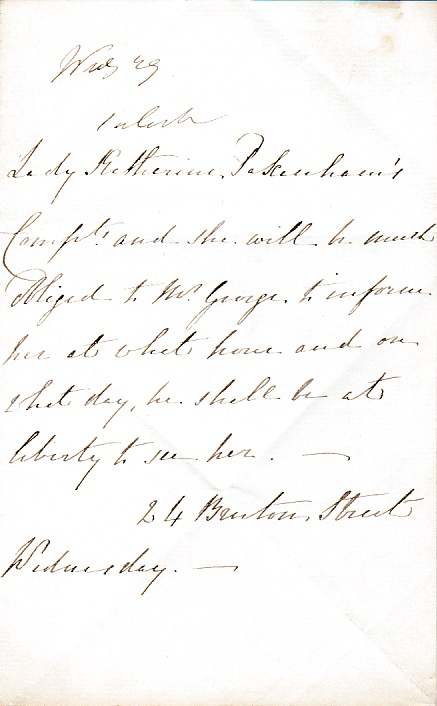 Wedy 29
1 o'clock
Lady Katherine Pakenham's
Compts. and she will be much
Obliged to Mr. George, to inform
her at what hour and on
what day, he shall be at
liberty to see her. —
24 Bruton Street
Wednesday. —